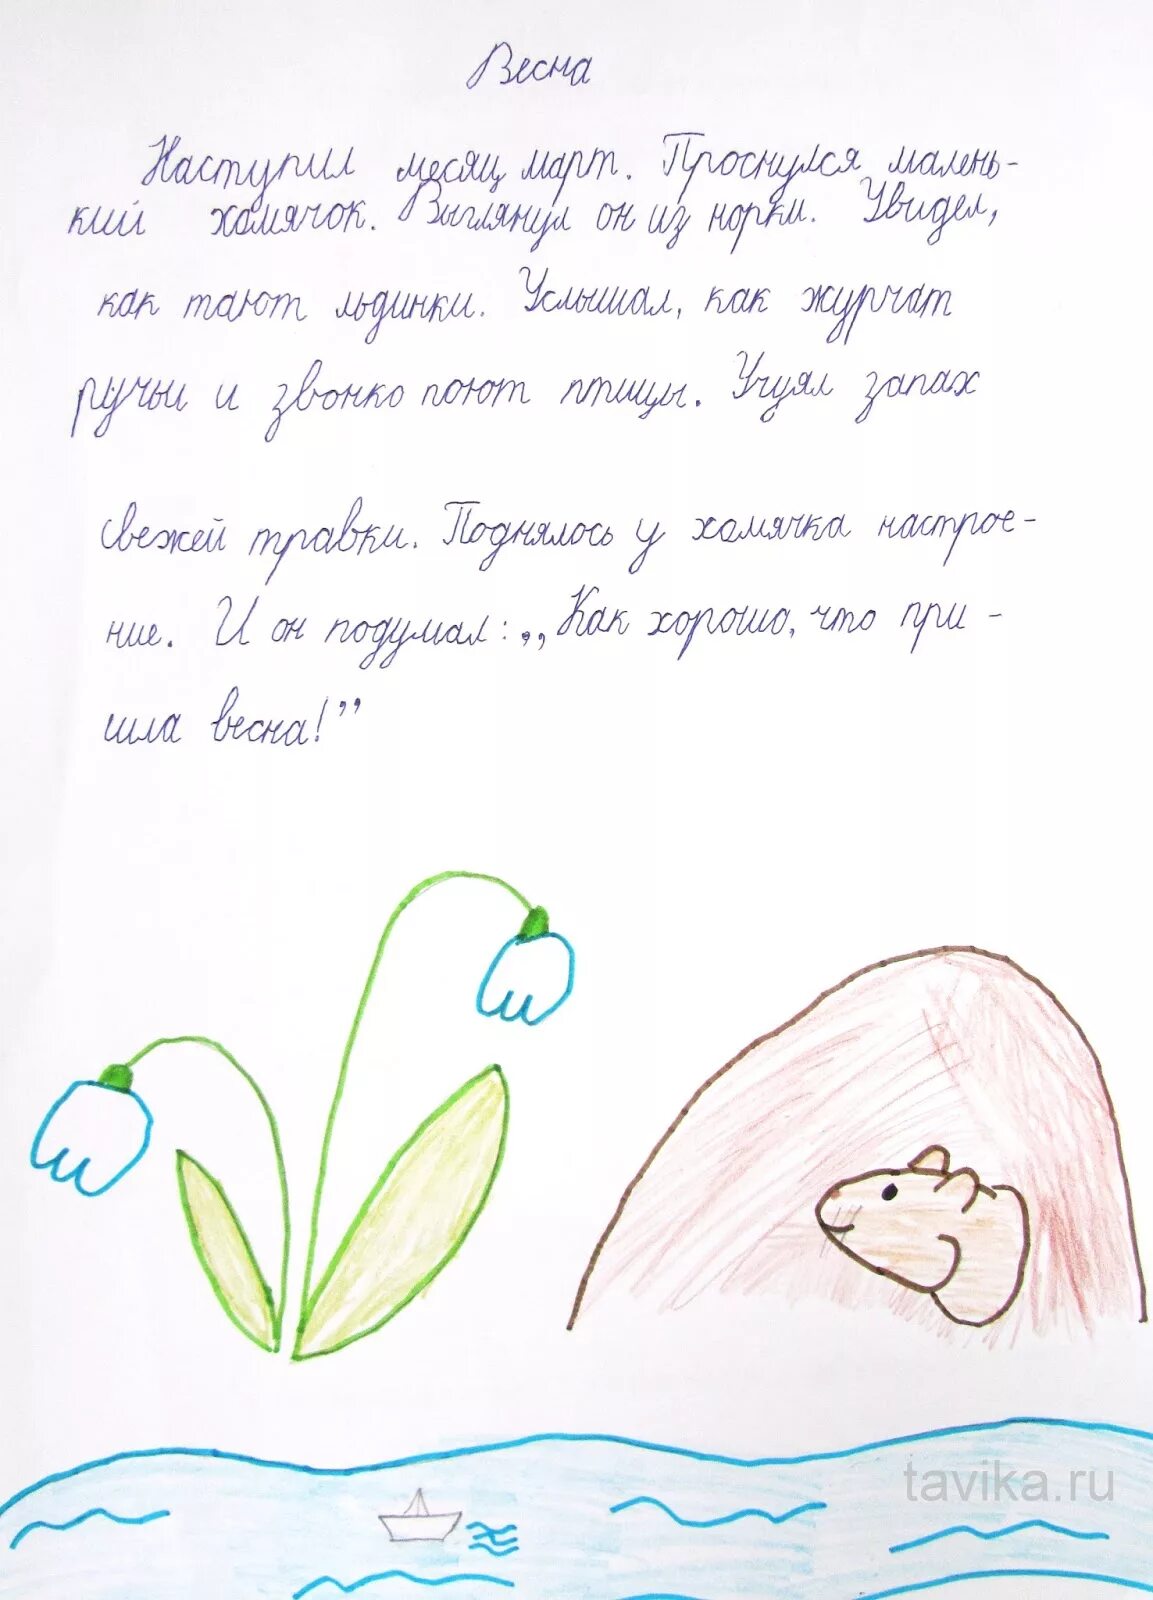 Весна
Наступил месяц март. Проснулся малень-
кий хомячок. Выглянул он из норки. Увидел,
как тают льдинки. Услышал, как журчат
ручьи и звонко поют птицы. Учуял запах
свежей травки. Поднялось у хомячка настрое-
ние. И он подумал: ,,Как хорошо, что при-
шла весна!”
tavika.ru